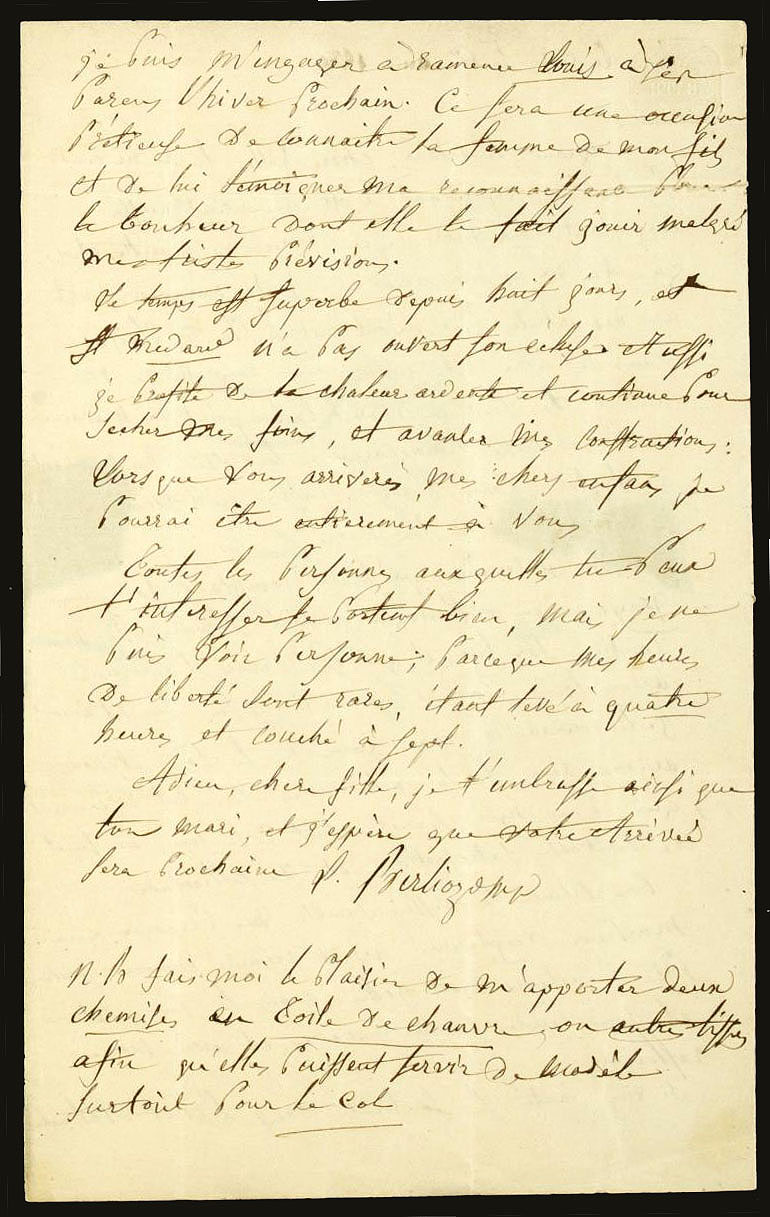 je puis m'engager à ramener Louis à ses
Parens l'hiver Prochain. Ce sera une occasion
Prétieuse De connaitre la femme De mon fils
et De lui témoigner ma reconnaissance Pour
le bonheur Dont elle le fait jouir malgré
mes tristes Prévisions.
Le temps est superbe Depuis huit jours, et
St Medard n'a Pas ouvert son écluse Aussi
je Profite De la chaleur ardente et continue Pour
secher mes foins, et avancer mes constructions:
Lors que Vous arriverés mes chers enfans je
Pourrai être entierement à Vous
Toutes les Personnes auxquelles tu Peux
t'interesser se Portent bien, mais je ne
Puis Voir Personne; Parceque mes heures
De liberté Sont rares, étant levé à quatre
heures et couché à sept.
Adieu, chere fille, je t'embrasse ainsi que
ton mari, et j'espère que Votre Arrivée
Sera Prochaine L. Berlioz Dmp
n.b fais-moi le Plaisir De m'apporter deux
chemises en Toile De chanvre ou autres tissus
afin qu'elles Puissent servir De modèle
surtout Pour le col